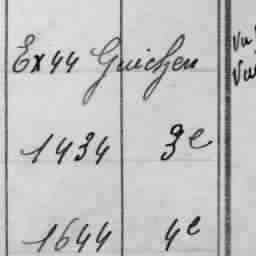 Ex44 Guichen
1434 3e
1644 4e